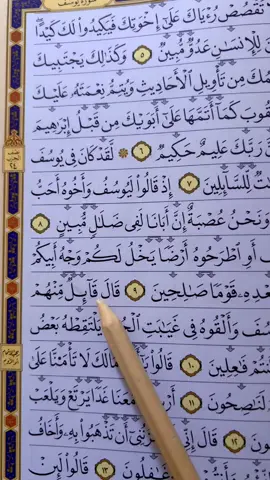 سورة يوسف
تَقْصُصْ رُءْيَاكَ عَلَىٰٓ إِخْوَتِكَ فَيَكِيدُوا۟ لَكَ كَيْدًا
لِلْإِنسَٰنِ عَدُوٌّ مُّبِينٌ ٥ وَكَذَٰلِكَ يَجْتَبِيكَ
مِن تَأْوِيلِ ٱلْأَحَادِيثِ وَيُتِمُّ نِعْمَتَهُۥ عَلَيْكَ
كَمَآ أَتَمَّهَا عَلَىٰٓ أَبَوَيْكَ مِن قَبْلُ إِبْرَٰهِيمَ
رَبَّكَ عَلِيمٌ حَكِيمٌ ٦ ۞ لَّقَدْ كَانَ فِى يُوسُفَ
لِّلسَّآئِلِينَ ٧ إِذْ قَالُوا۟ لَيُوسُفُ وَأَخُوهُ أَحَبُّ
وَنَحْنُ عُصْبَةٌ إِنَّ أَبَانَا لَفِى ضَلَٰلٍ مُّبِينٍ ٨
أَوِ ٱطْرَحُوهُ أَرْضًا يَخْلُ لَكُمْ وَجْهُ أَبِيكُمْ
قَوْمًا صَٰلِحِينَ ٩ قَالَ قَآئِلٌ مِّنْهُمْ
وَأَلْقُوهُ فِى غَيَٰبَتِ يَلْتَقِطْهُ بَعْضُ
فَٰعِلِينَ ١٠ قَالُوا۟ مَالَكَ لَا تَأْمَ۫نَّا عَلَىٰ
لَنَٰصِحُونَ ١١ مَعَنَا غَدًا يَرْتَعْ وَيَلْعَبْ
١٢ قَالَ إِنِّى أَن تَذْهَبُوا۟ بِهِۦ وَأَخَافُ
غَٰفِلُونَ ١٣ قَالُوا۟ لَئِنْ